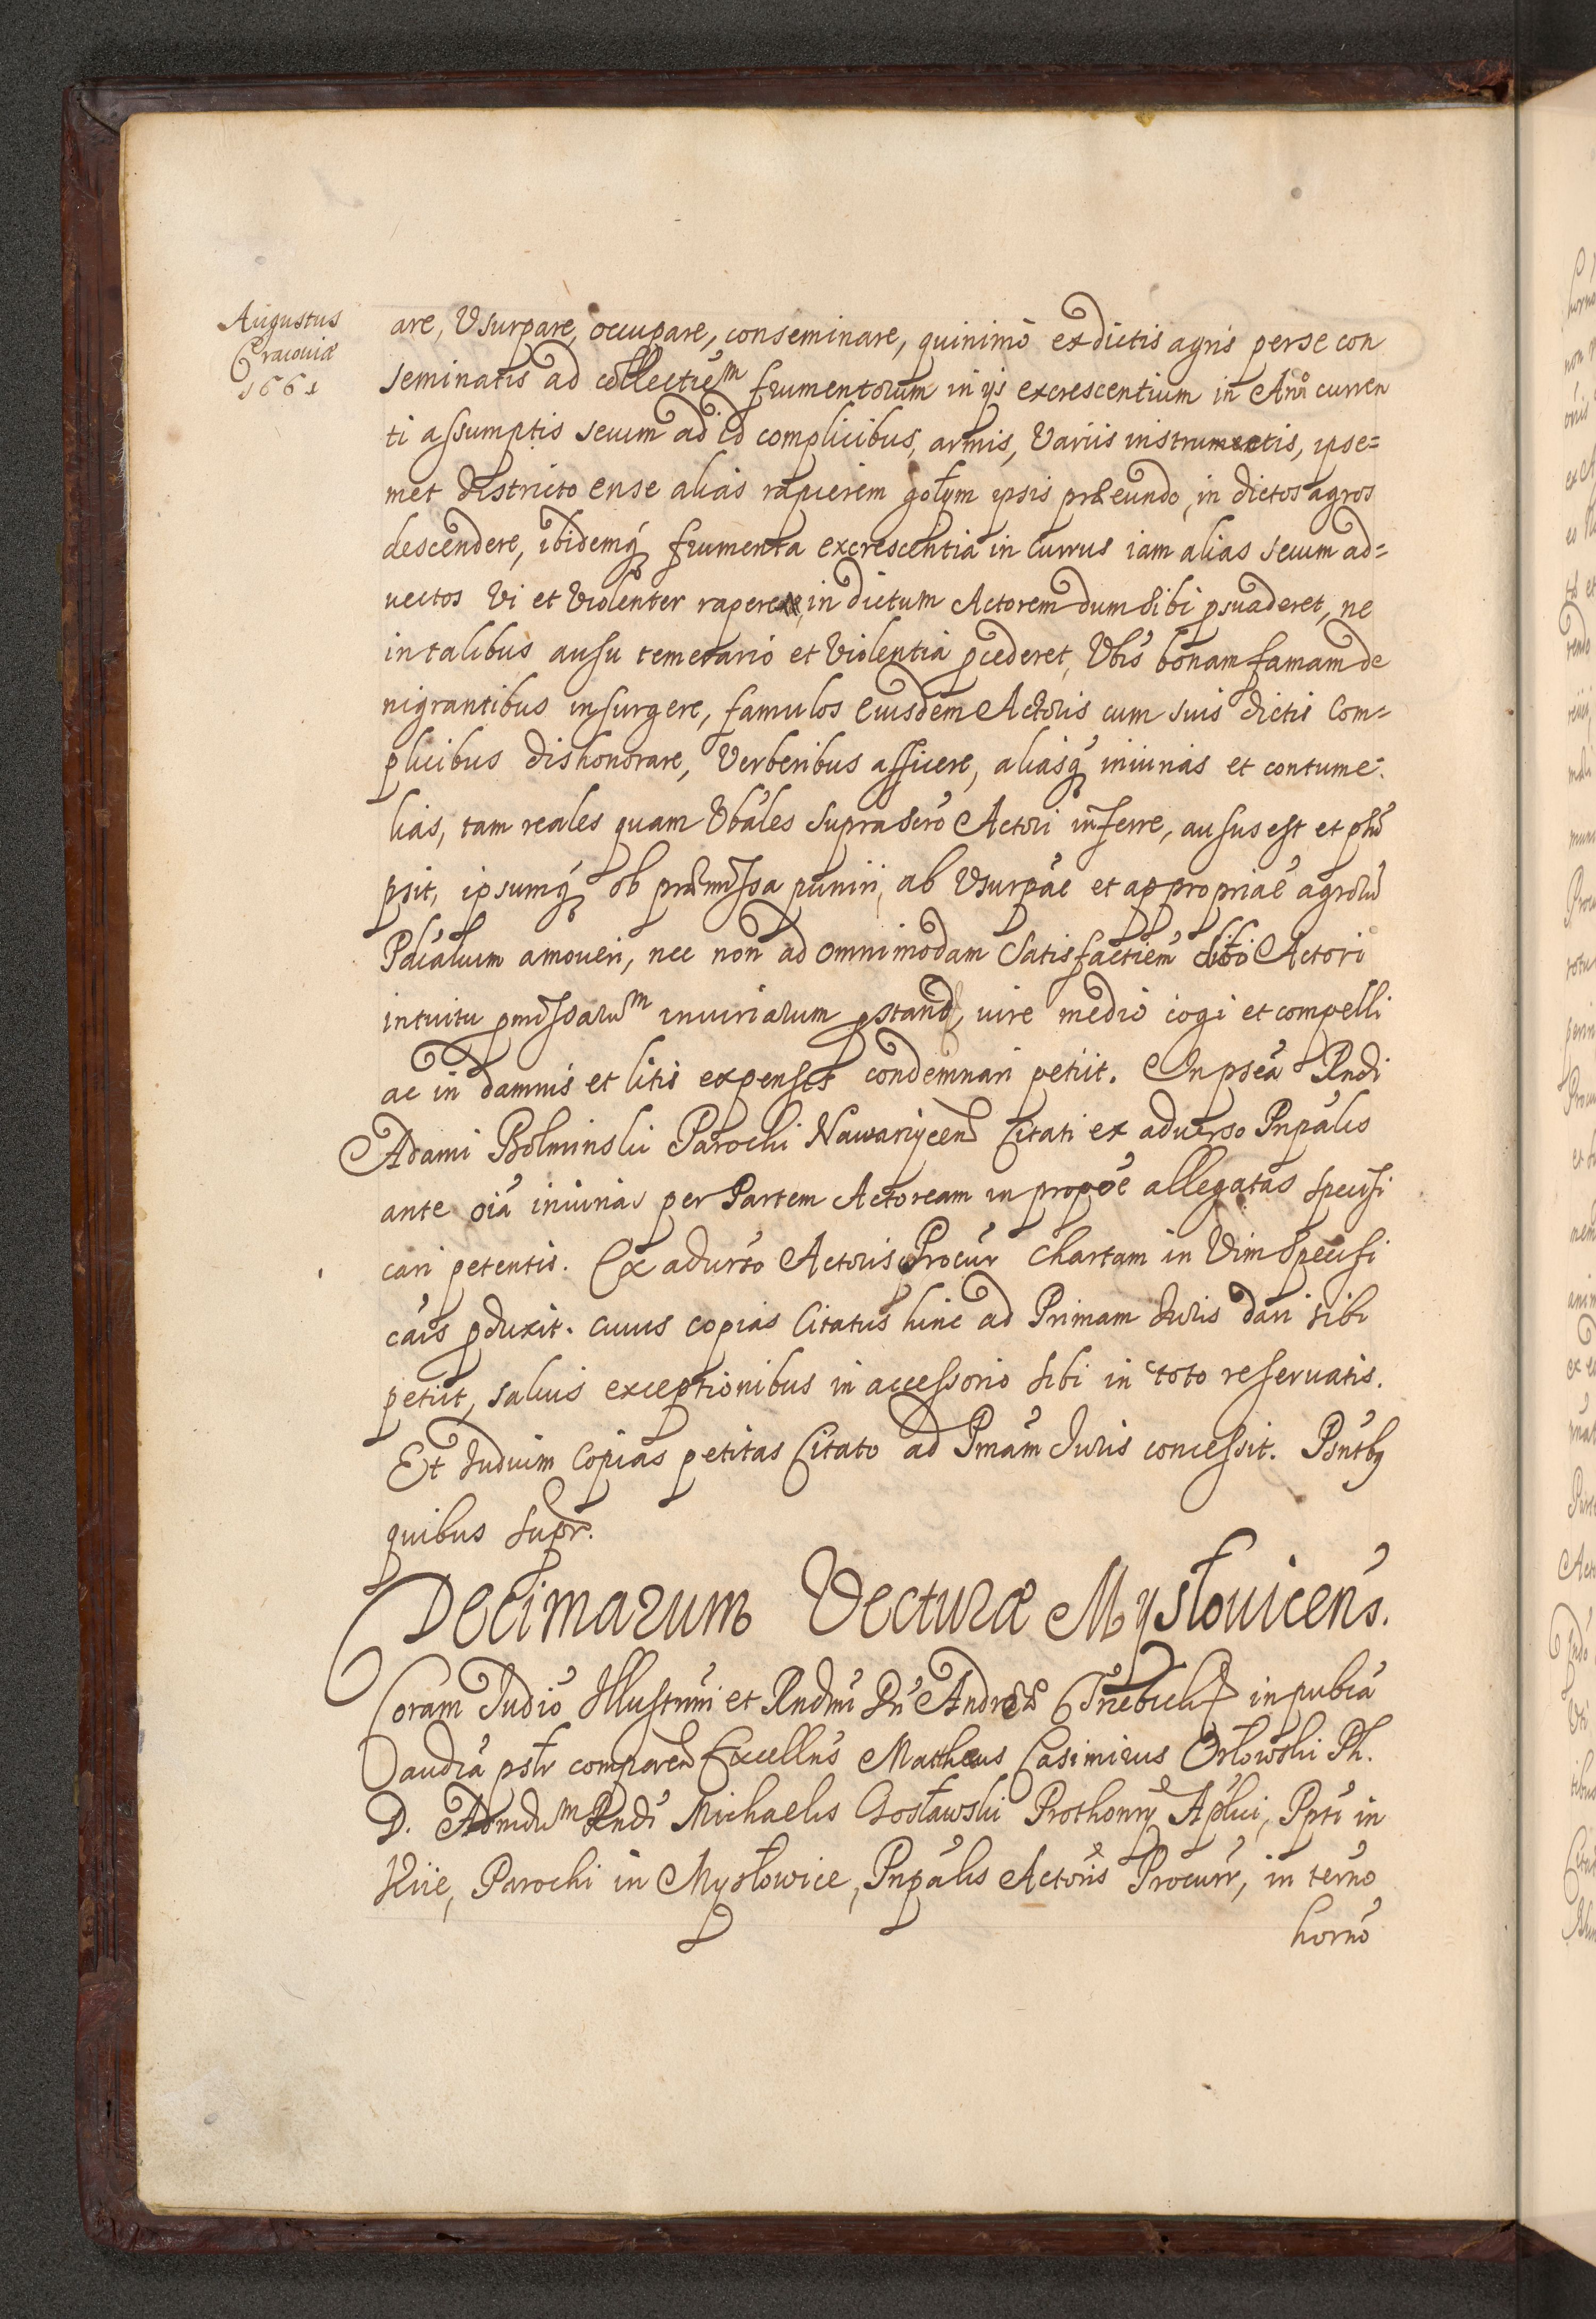 Augustus
Cracoviæ
1661
are, Usurpare, occupare, conseminare, quinimò ex dictis agris per se con
seminatis ad collectiẽm frumentorum in ijs excrescentium in Anõ curren
ti assumptis secum ad id complicibus, armis, Variis instrumentis, ipse=
met districto ense alias rapierem gołym ipsis præeundo, in dictos agros
descendere, ibidemq́ frumenta excrescentia in currus iam alias secum ad=
uectos Vi et Violenter rapere, in dictum Actorem dum sibi psuaderet, ne
in talibus ausu temerario et Violentia pcederet, Vbis bonam famam de
nigrantibus insurgere, famulos Eiusdem Actoris cum suis dictis Com=
plicibus dishonorare, Verberibus afficere, aliasq́ iniurias et contume=
lias, tam reales quam Vbáles suprascrõ Actori inferre, ausus est et phũ
psit, ipsumq́ ob præmissa puniri, ab Usurpãe et appropriãe agrorũ
Pdiálium amoueri, nec non ad omnimodam Satisfactiẽm Actori
intuitu pmissarum iniuriarum pstand, iure medio cogi et compelli
ac in damnis et litis expensis condemnari petiit. In pseã Rndi
Adami Bolminski Parochi Nawarijcen Citati ex aduerso Pnpális
ante oiã iniurias per Partem Actoream in propõe allegatas specifi
cari petentis. Ex aduerso Actoris Procur chartam in Vim Specifi
cãis pduxit. cuius copias Citatus hinc ad Primam Iuris dari sibi
petiit, saluis exceptionibus in accessorio sibi in toto reseruatis.
Et Iudium Copias petitas Citato ad Pmãm Iuris concessit. Psntbq
quibus supr.
Decimarum Vecturæ Mysłouicens.
Coram Iudiõ Illustrmi et Rndmi Dñ Andreæ Trzebicki in publã
audiã pstr comparen Excellns Matthæus Casimirus Orłowski Ph.
D. Admdum Rndi Michaelis Gosławski Prothonrij Aplici, Ppti in
Kiie, Parochi in Mysłowice, Pnpális Actoris Procurr, in terno
hornõ